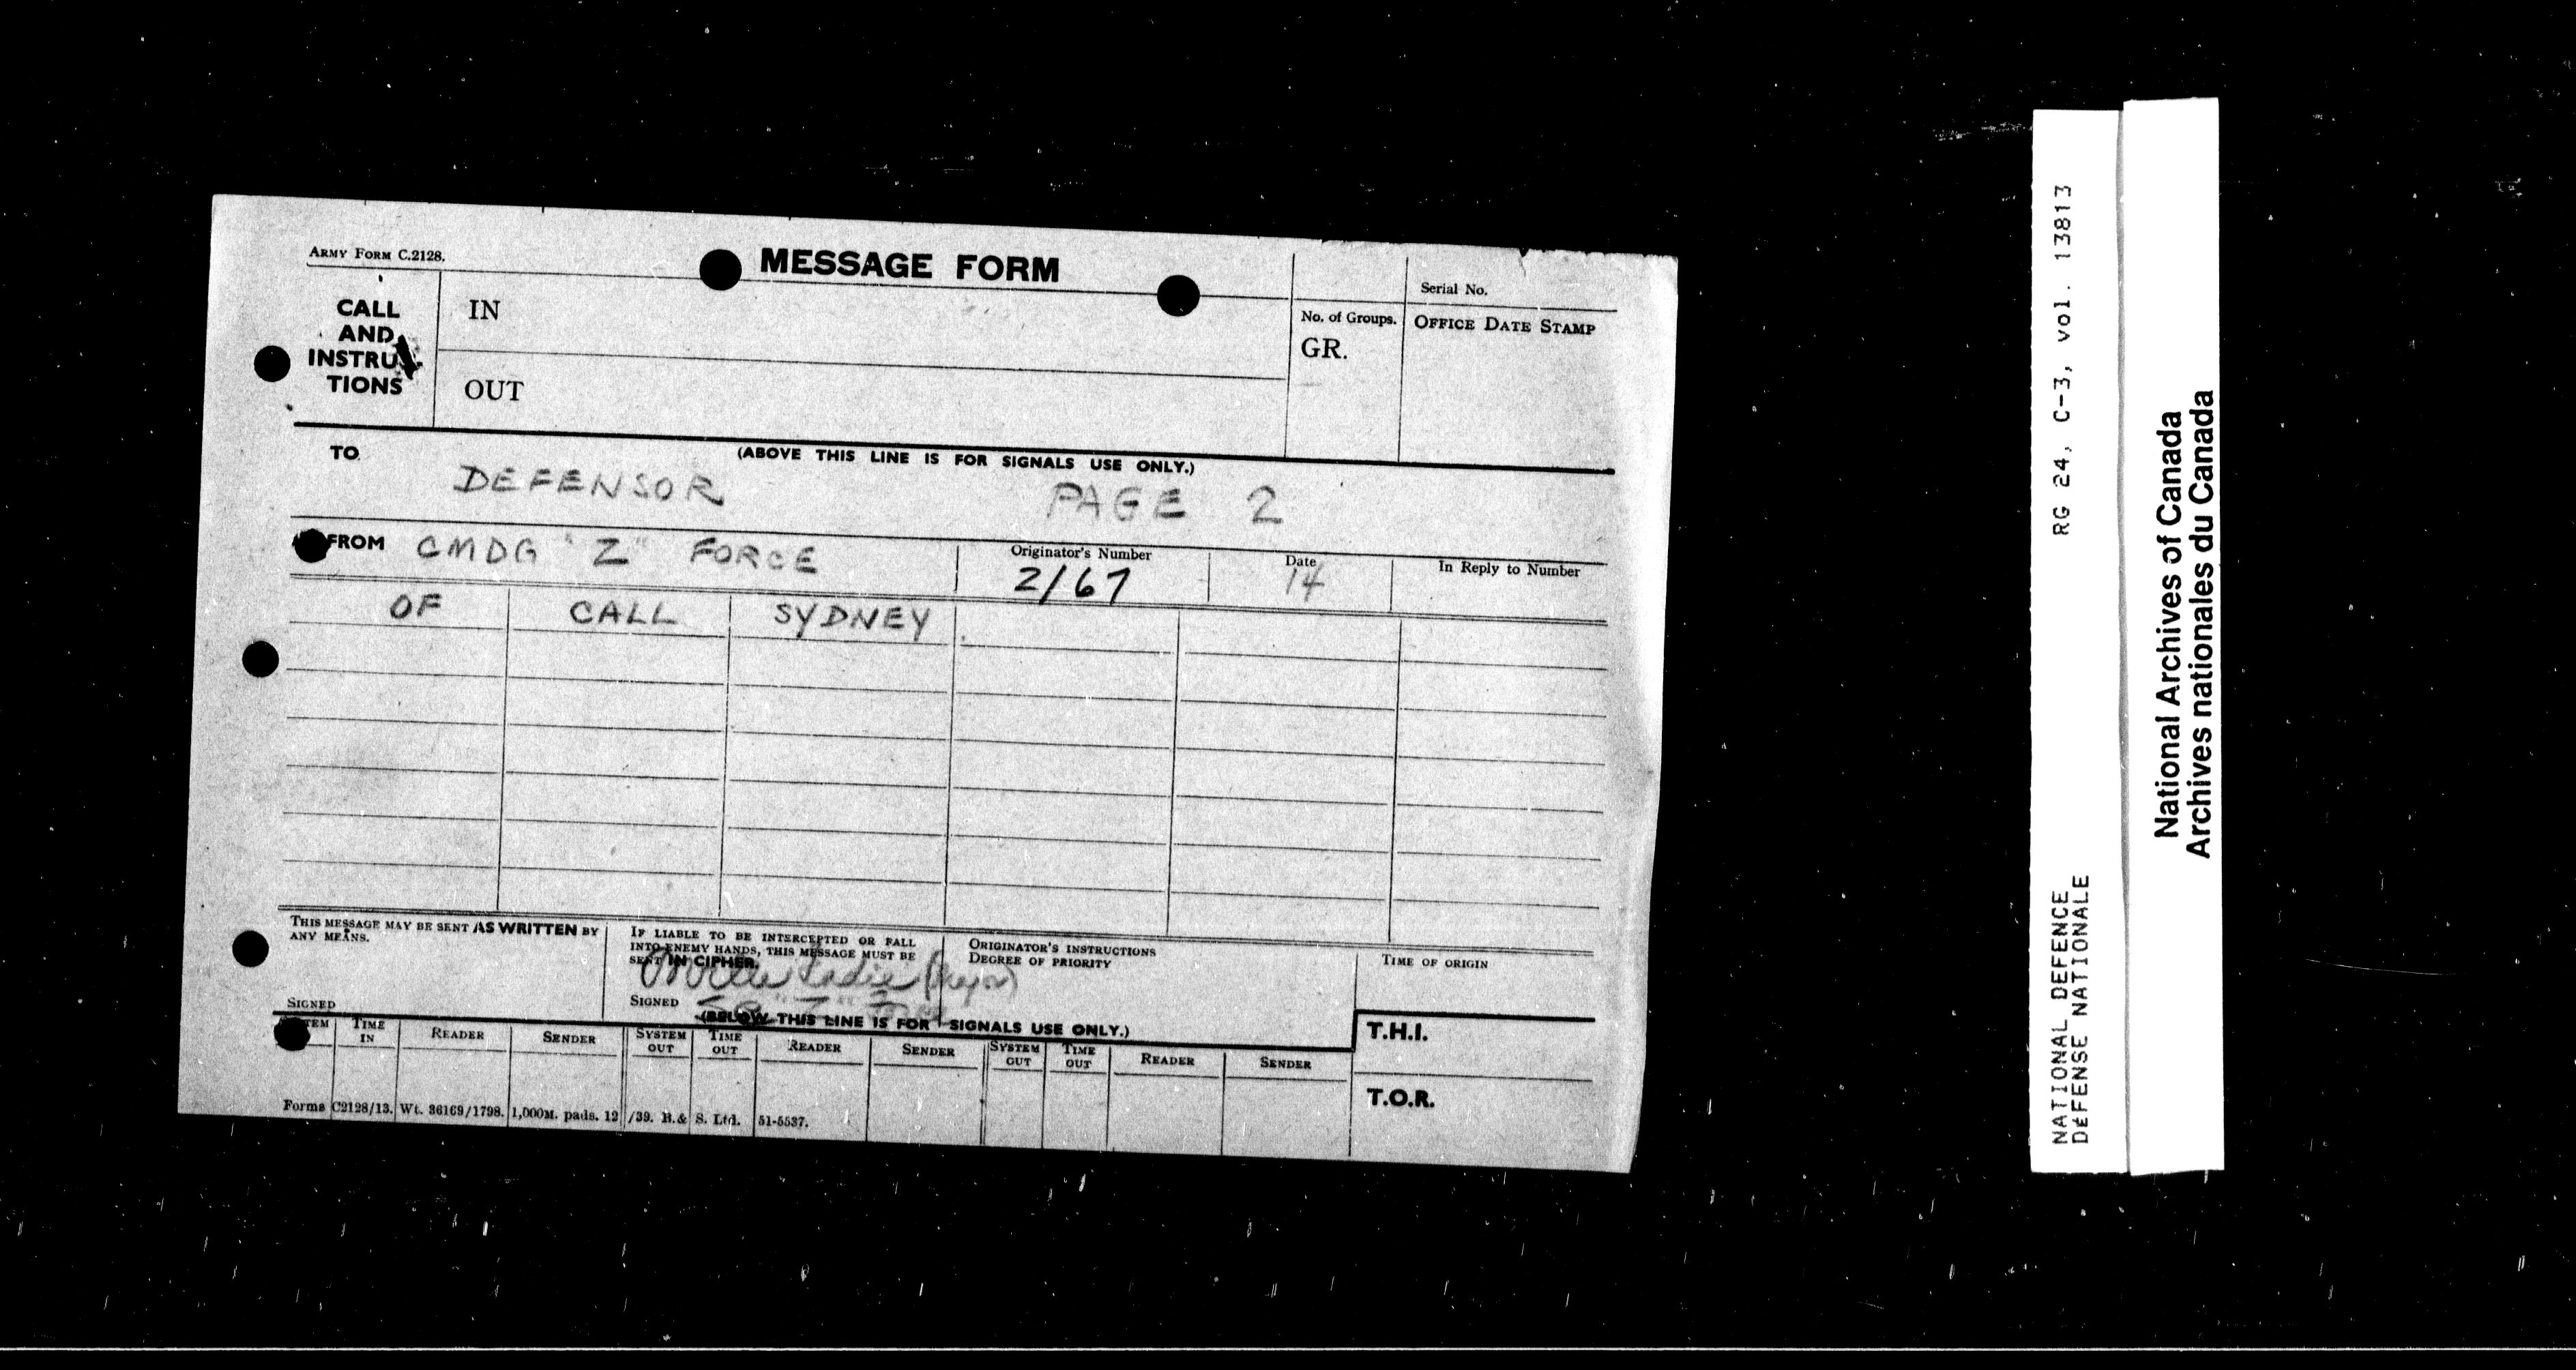 ARMY FORM C.2128.
MESSAGE FORM
Serial No.
CALL
AND
INSTRUC-
TIONS
IN
OUT
No. of Groups.
GR.
OFFICE DATE STAMP
(ABOVE THIS LINE IS FOR SIGNALS USE ONLY.)
TO
DEFENSOR PAGE 2
FROM CMDG "Z" FORCE
Originator's Number
2/67
Date
14
In Reply to Number
OF CALL SYDNEY
THIS MESSAGE MAY BE SENT AS WRITTEN BY
ANY MEANS.
SIGNED
IF LIABLE TO BE INTERCEPTED OR FALL
INTO ENEMY HANDS, THIS MESSAGE MUST BE
SENT IN CIPHER.
(Major)
SIGNED
"Z"
ORIGINATOR'S INSTRUCTIONS
DEGREE OF PRIORITY
TIME OF ORIGIN
(BELOW THIS LINE IS FOR SIGNALS USE ONLY.)
SYSTEM
IN TIME
IN READER SENDER SYSTEM
OUT TIME
OUT READER SENDER SYSTEM
OUT TIME
OUT READER SENDER
T.H.I.
T.O.R.
Forms C2128/13. Wt. 36169/1798. 1,000M. pads. 12/39. B. & S. Ltd. 51-5537.
RG 24, C-3, vol. 13813
NATIONAL DEFENCE
DÉFENSE NATIONALE
National Archives of Canada
Archives nationales du Canada